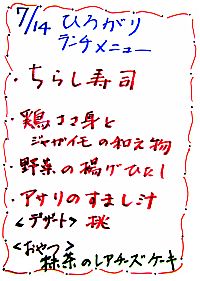 7/14 ひろがり
ランチメニュー
・ちらし寿司
・鶏ササ身と
ジャガイモの和え物
・野菜の揚げひたし
・アサリのすまし汁
<デザート> 桃
<おやつ>
抹茶のレアチーズケーキ